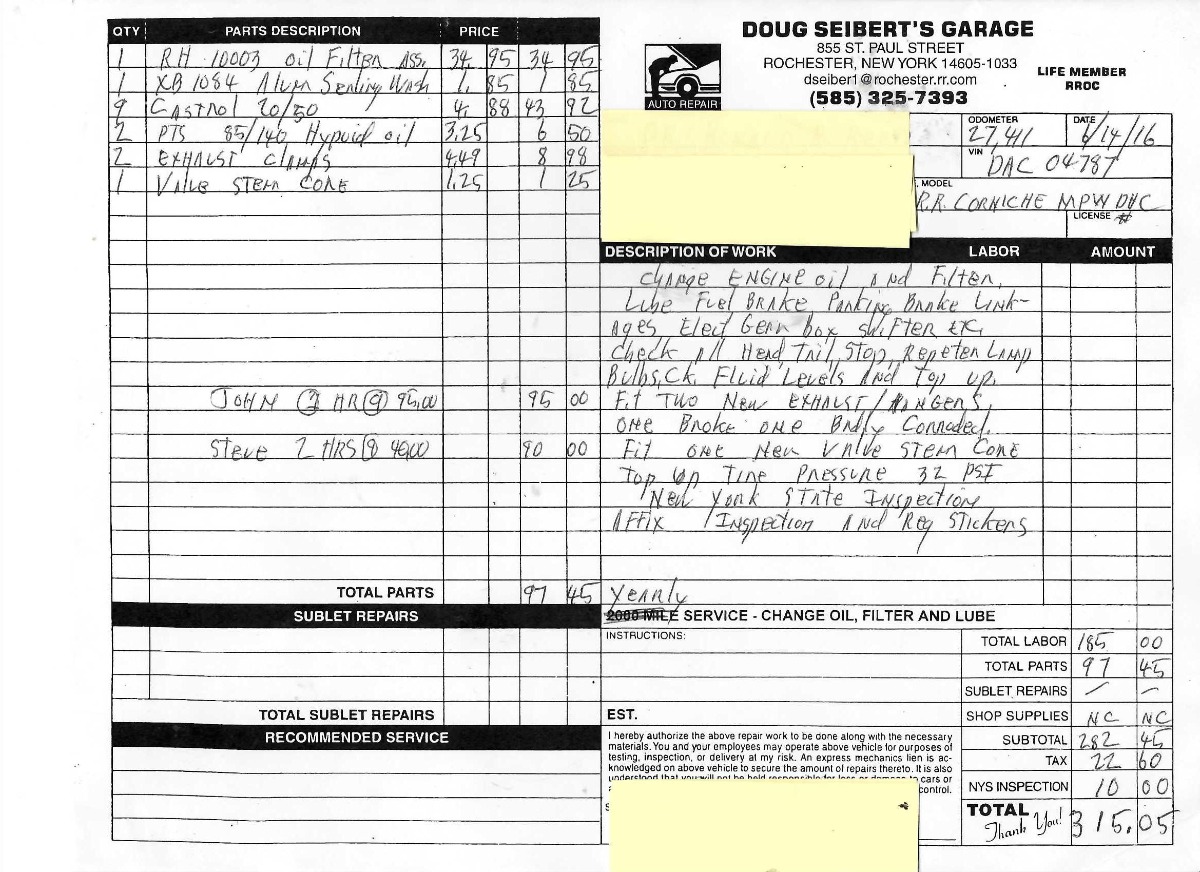 DOUG SEIBERT'S GARAGE
855 ST. PAUL STREET
ROCHESTER, NEW YORK 14605-1033
dseiber1@rochester.rr.com
(585) 325-7393
LIFE MEMBER
RROC
AUTO REPAIR
QTY PARTS DESCRIPTION PRICE
1 RH 10003 Oil Filter Ass. 34 95 34 95
1 XB 1084 Alum Sealing Wash 1. 85 1 85
9 CASTROL 20/50 4. 88 43 92
2 PTS 85/140 Hypoid oil 3.25 6 50
2 EXHAUST CLAMPS 4.49 8 98
1 Valve STEM CORE 1.25 1 25
JOHN 1 HR @ 95.00 95 00
Steve 2 HRS @ 40.00 90 00
TOTAL PARTS 97 45
SUBLET REPAIRS
TOTAL SUBLET REPAIRS
RECOMMENDED SERVICE
ODOMETER
27,411
DATE
6/14/16
VIN
DAC 04787
MODEL
R.R. CORNICHE MPW DHC
LICENSE #
DESCRIPTION OF WORK LABOR AMOUNT
CHANGE ENGINE oil AND Filter,
Lube Fuel BRAKE Parking Brake Link-
Ages Elect Gear Box shifter ETC,
Check All Head, Tail, Stop, Repeter Lamp
Bulbs, Ck. Fluid Levels AND Top up.
Fit TWO New EXHAUST/HANGERS,
ONE Broke ONE Badly Corroded.
Fit ONE New VALVE STEM CORE
Top Up Tire PRESSURE 32 PSI
New York STATE INSPECTION
AFFIX INSPECTION AND Reg STICKERS
Yearly
2000 MILE SERVICE - CHANGE OIL, FILTER AND LUBE
INSTRUCTIONS:
EST.
I hereby authorize the above repair work to be done along with the necessary
materials. You and your employees may operate above vehicle for purposes of
testing, inspection, or delivery at my risk. An express mechanics lien is ac-
knowledged on above vehicle to secure the amount of repairs thereto. It is also
understood that you will not be held responsible for loss or damage to cars or
control.
TOTAL LABOR 185 00
TOTAL PARTS 97 45
SUBLET REPAIRS — —
SHOP SUPPLIES NC NC
SUBTOTAL 282 45
TAX 22 60
NYS INSPECTION 10 00
TOTAL 315.05
Thank You!